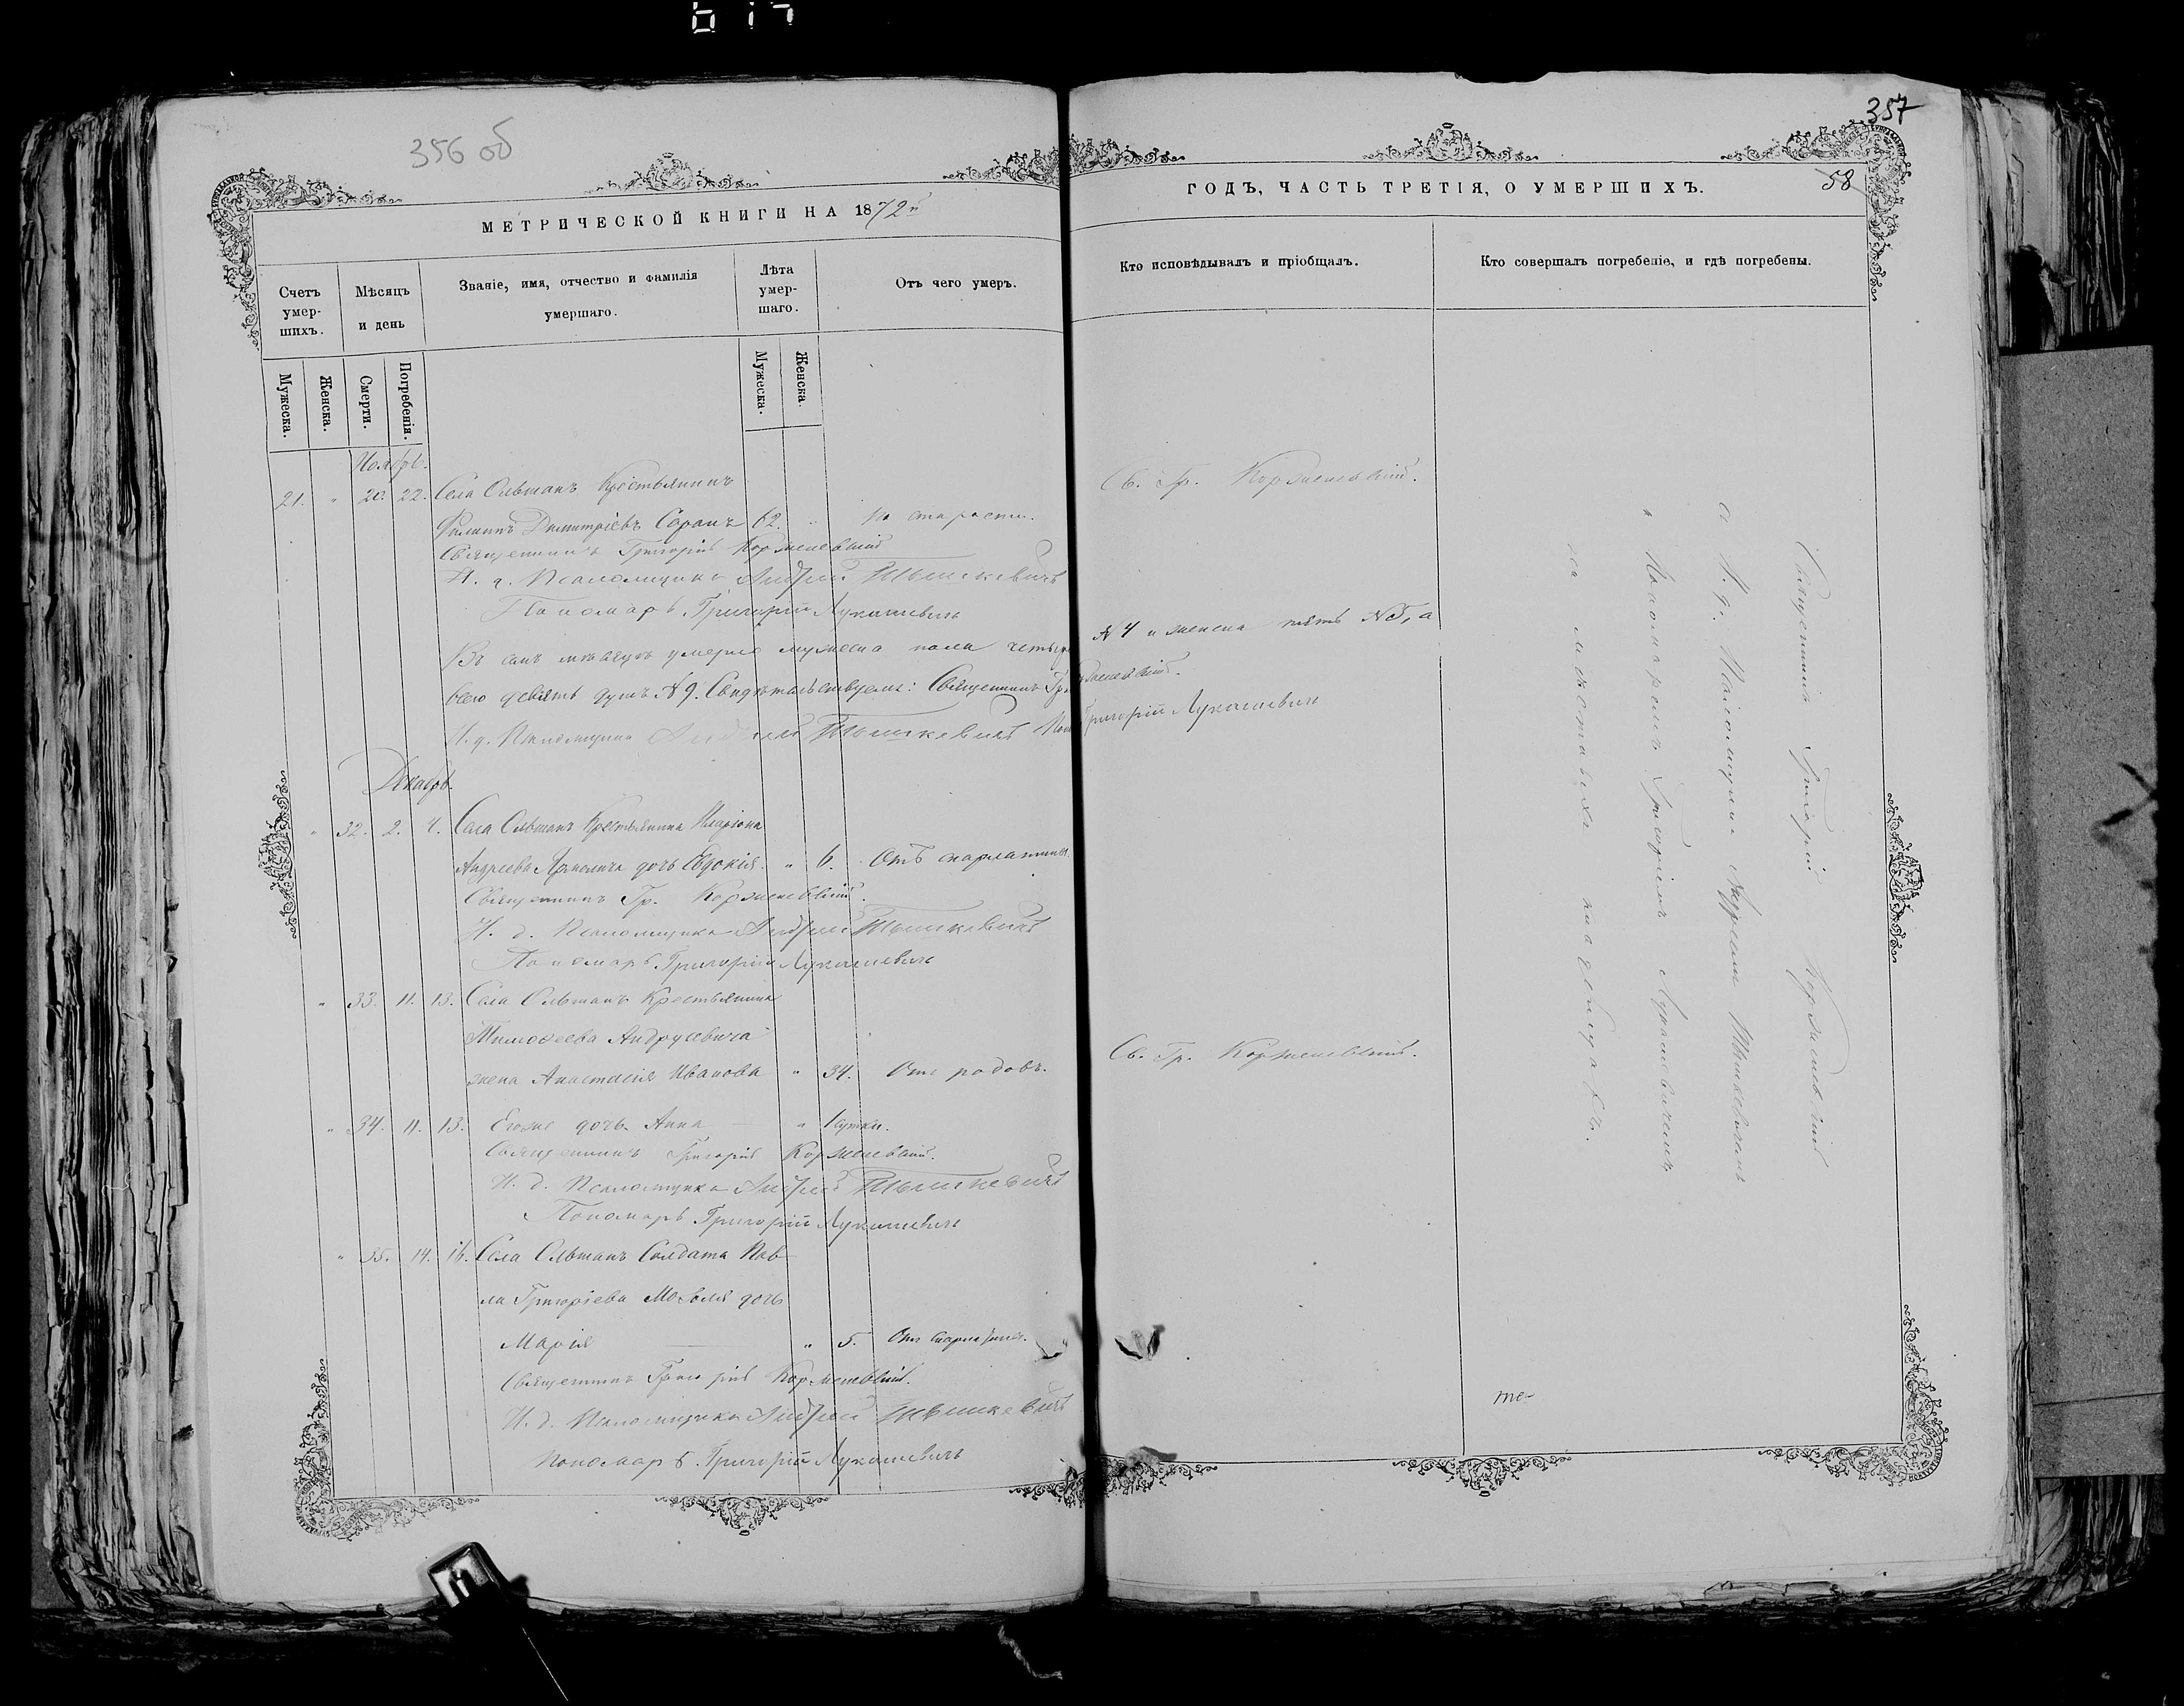 356 об
МЕТРИЧЕСКОЙ КНИГИ НА 1872й
Счетъ умер-шихъ.
Мѣсяцъ и день
Званіе, имя, отчество и фамилія умершаго.
Лѣта умер-шаго.
Отъ чего умеръ.
Мужеска.
Женска.
Смерти.
Погребенія.
Мужеска.
Женска.
Ноябрь.
21. " 20. 22. Села Ольманъ Крестьянинъ
Филиппъ Димитріевъ Соранъ 62. " По старости.
Священникъ Григорій Корженевскій
И. д. Псаломщика Андрей Тышкевичъ
Пономарь Григорій Лукашевичъ
Въ семъ мѣсяцѣ умерло мужеска пола четыре
всего девять душъ № 9. Свидѣтельствуемъ: Священникъ Гр.
И. д. Псаломщика Андрей Тышкевичъ Пон
Декабрь.
" 32. 2. 4. Села Ольманъ Крестьянина Иларіона
Андреева Ярмолича дочь Евдокія. " 6. Отъ скарлатины.
Священникъ Гр. Корженевскій.
И. д. Псаломщика Андрей Тышкевичъ
Пономарь Григорій Лукашевичъ
" 33. 11. 13. Села Ольманъ Крестьянина
Тимоѳеева Андрусевича
жена Анастасія Иванова " 34. Отъ родовъ.
" 34. 11. 13. Егоже дочь Анна " 1 сутки.
Священникъ Григорій Корженевскій.
И. д. Псаломщика Андрей Тышкевичъ
Пономарь Григорій Лукашевичъ
" 35. 14. 16. Села Ольманъ Солдата Пав-
ла Григоріева дочь
Марія " 5. Отъ скарлатины.
Священникъ Григорій Корженевскій.
И. д. Псаломщика Андрей Тышкевичъ
Пономарь Григорій Лукашевичъ
357
58
ГОДЪ, ЧАСТЬ ТРЕТІЯ, О УМЕРШИХЪ.
Кто исповѣдывалъ и пріобщалъ.
Кто совершалъ погребеніе, и гдѣ погребены.
Св. Гр. Корженевскій.
№ 4 и женска пять № 5, а
Корженевскій.
Григорій Лукашевичъ
Св. Гр. Корженевскій.
Священникъ Григорій Корженевскій
съ И. д. Псаломщика Андреемъ Тышкевичемъ
и Пономаремъ Григоріемъ Лукашевичемъ
на мѣстныхъ кладбищахъ.
те-